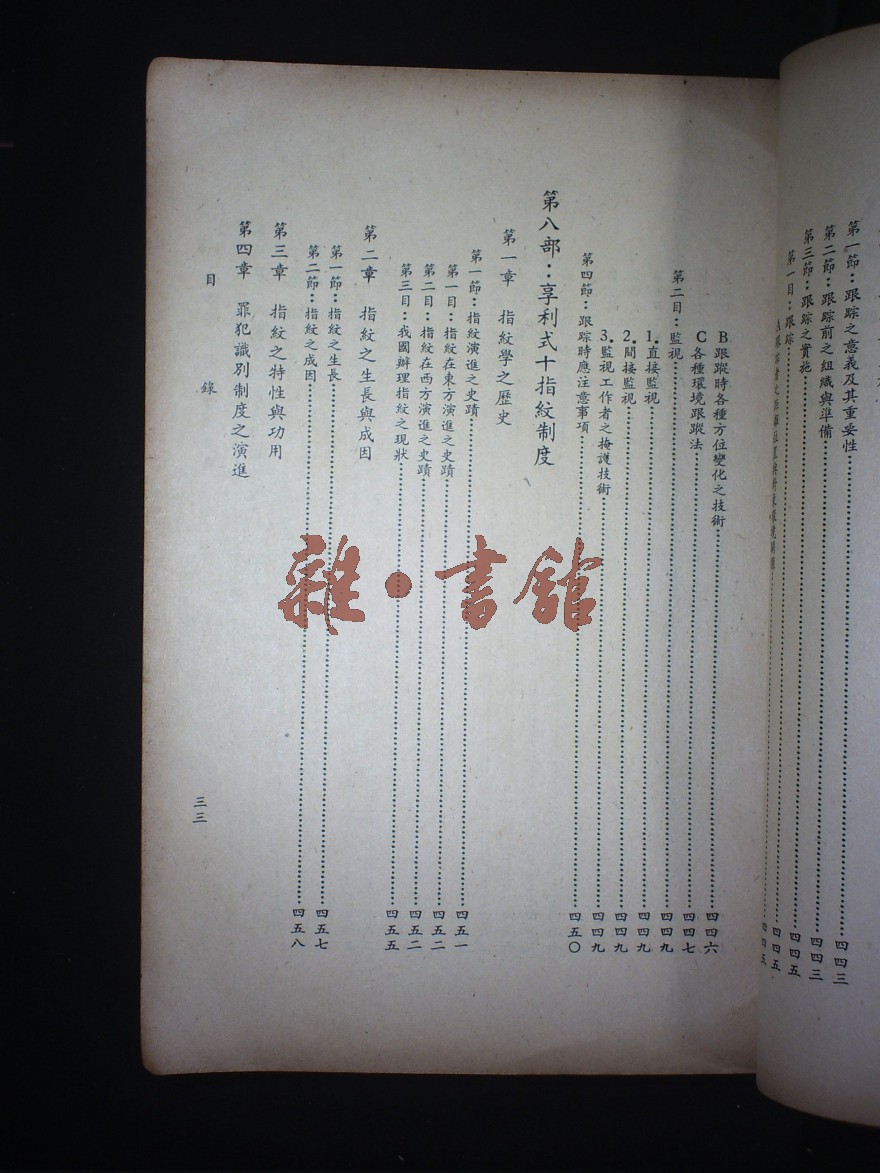 第一節：跟踪之意義及其重要性……四四三
第二節：跟踪前之組織與準備……四四三
第三節：跟踪之實施……四四五
第一目：跟踪……四四五
B跟蹤時各種方位變化之技術……四四六
C各種環境跟蹤法……四四七
第二目：監視……四四九
1.直接監視……四四九
2.間接監視……四四九
3.監視工作者之掩護技術……四四九
第四節：跟踪時應注意事項……四五〇
第八部：享利式十指紋制度
第一章 指紋學之歷史
第一節：指紋演進之史蹟……四五一
第一目：指紋在東方演進之史蹟……四五二
第二目：指紋在西方演進之史蹟……四五二
第三目：我國辦理指紋之現狀……四五五
第二章 指紋之生長與成因
第一節：指紋之生長……四五七
第二節：指紋之成因……四五八
第三章 指紋之特性與功用
第四章 罪犯識別制度之演進
目錄
三三
雜·書舘